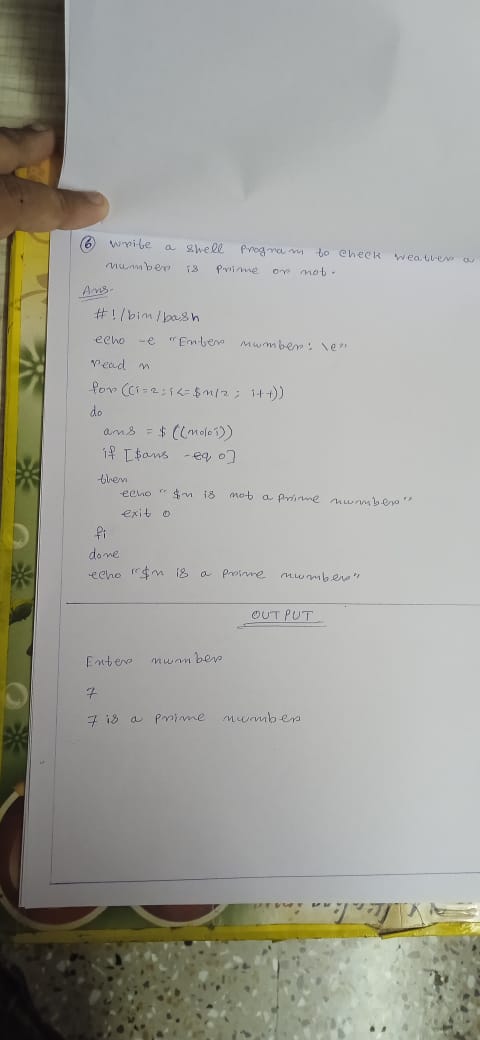 6 Write a shell program to check weather a
number is prime or not.
Ans-
#!/bin/bash
echo -e "Enter number: \c"
read n
for ((i=2; i<=$n/2; i++))
do
ans = $((n%i))
if [$ans -eq 0]
then
echo "$n is not a prime number"
exit 0
fi
done
echo "$n is a prime number"
OUTPUT
Enter number
7
7 is a prime number